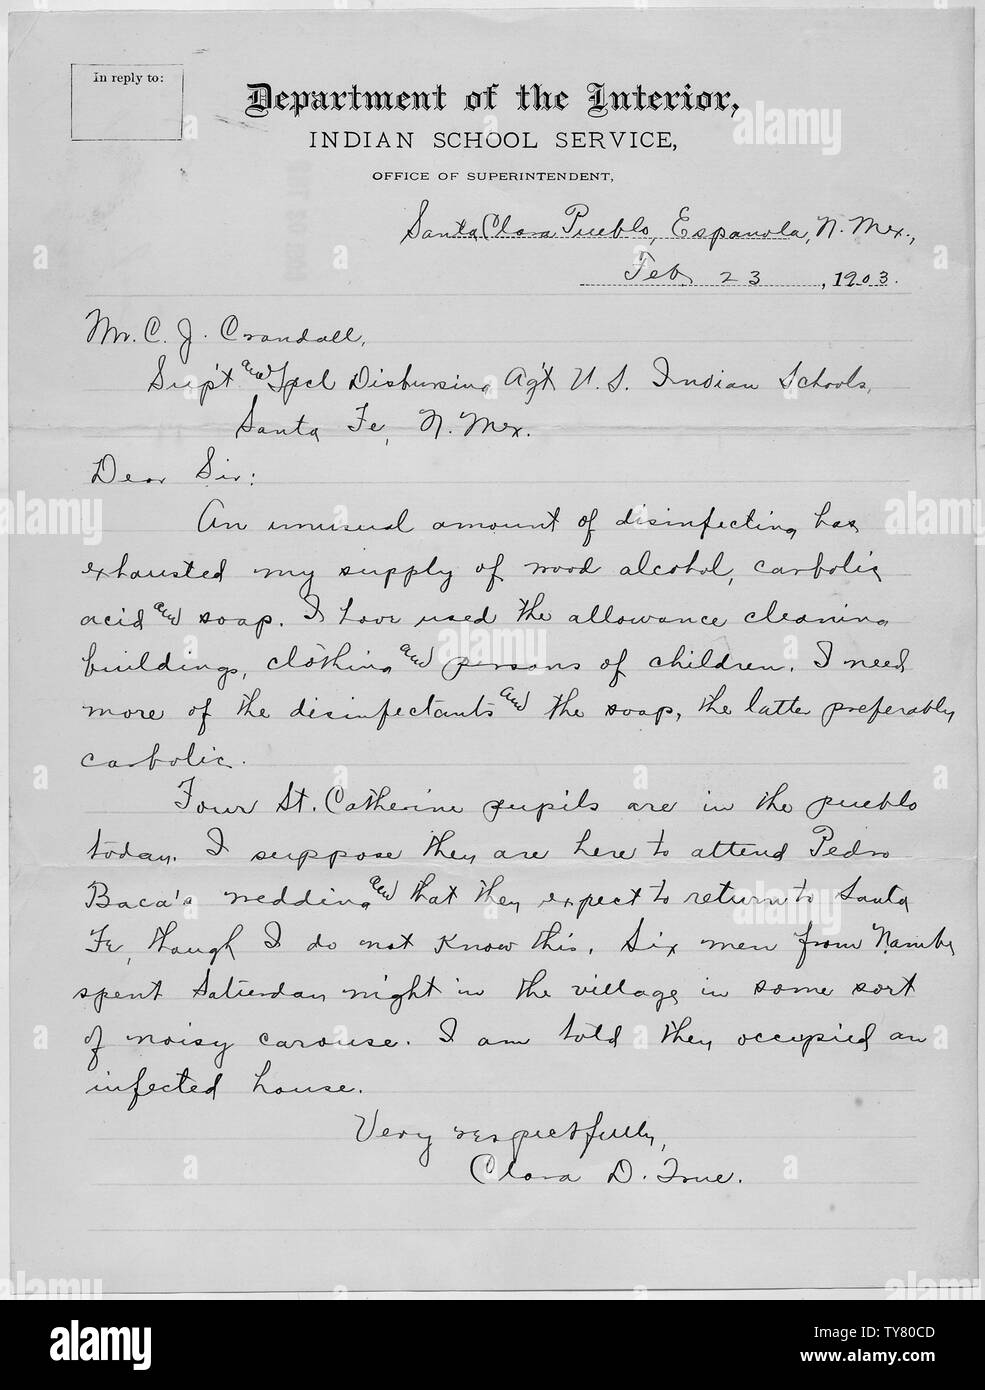 In reply to:
Department of the Interior,
INDIAN SCHOOL SERVICE,
OFFICE OF SUPERINTENDENT,
Santa Clara Pueblo, Espanola, N. Mex.,
Feb. 23, 1903.
Mr. C. J. Crandall,
Sup't and Spcl Disbursing Ag't U. S. Indian Schools,
Santa Fe, N. Mex.
Dear Sir:
An unusual amount of disinfecting has
exhausted my supply of wood alcohol, carbolic
acid and soap. I have used the allowance cleaning
buildings, clothing and persons of children. I need
more of the disinfectants and the soap, the latter preferably
carbolic.
Four St. Catherine pupils are in the pueblo
today. I suppose they are here to attend Pedro
Baca's wedding and that they expect to return to Santa
Fe, though I do not know this. Six men from Nambe
spent Saturday night in the village in some sort
of noisy carouse. I am told they occupied an
infected house.
Very respectfully,
Clara D. True.
alamy
TY80CD
www.alamy.com